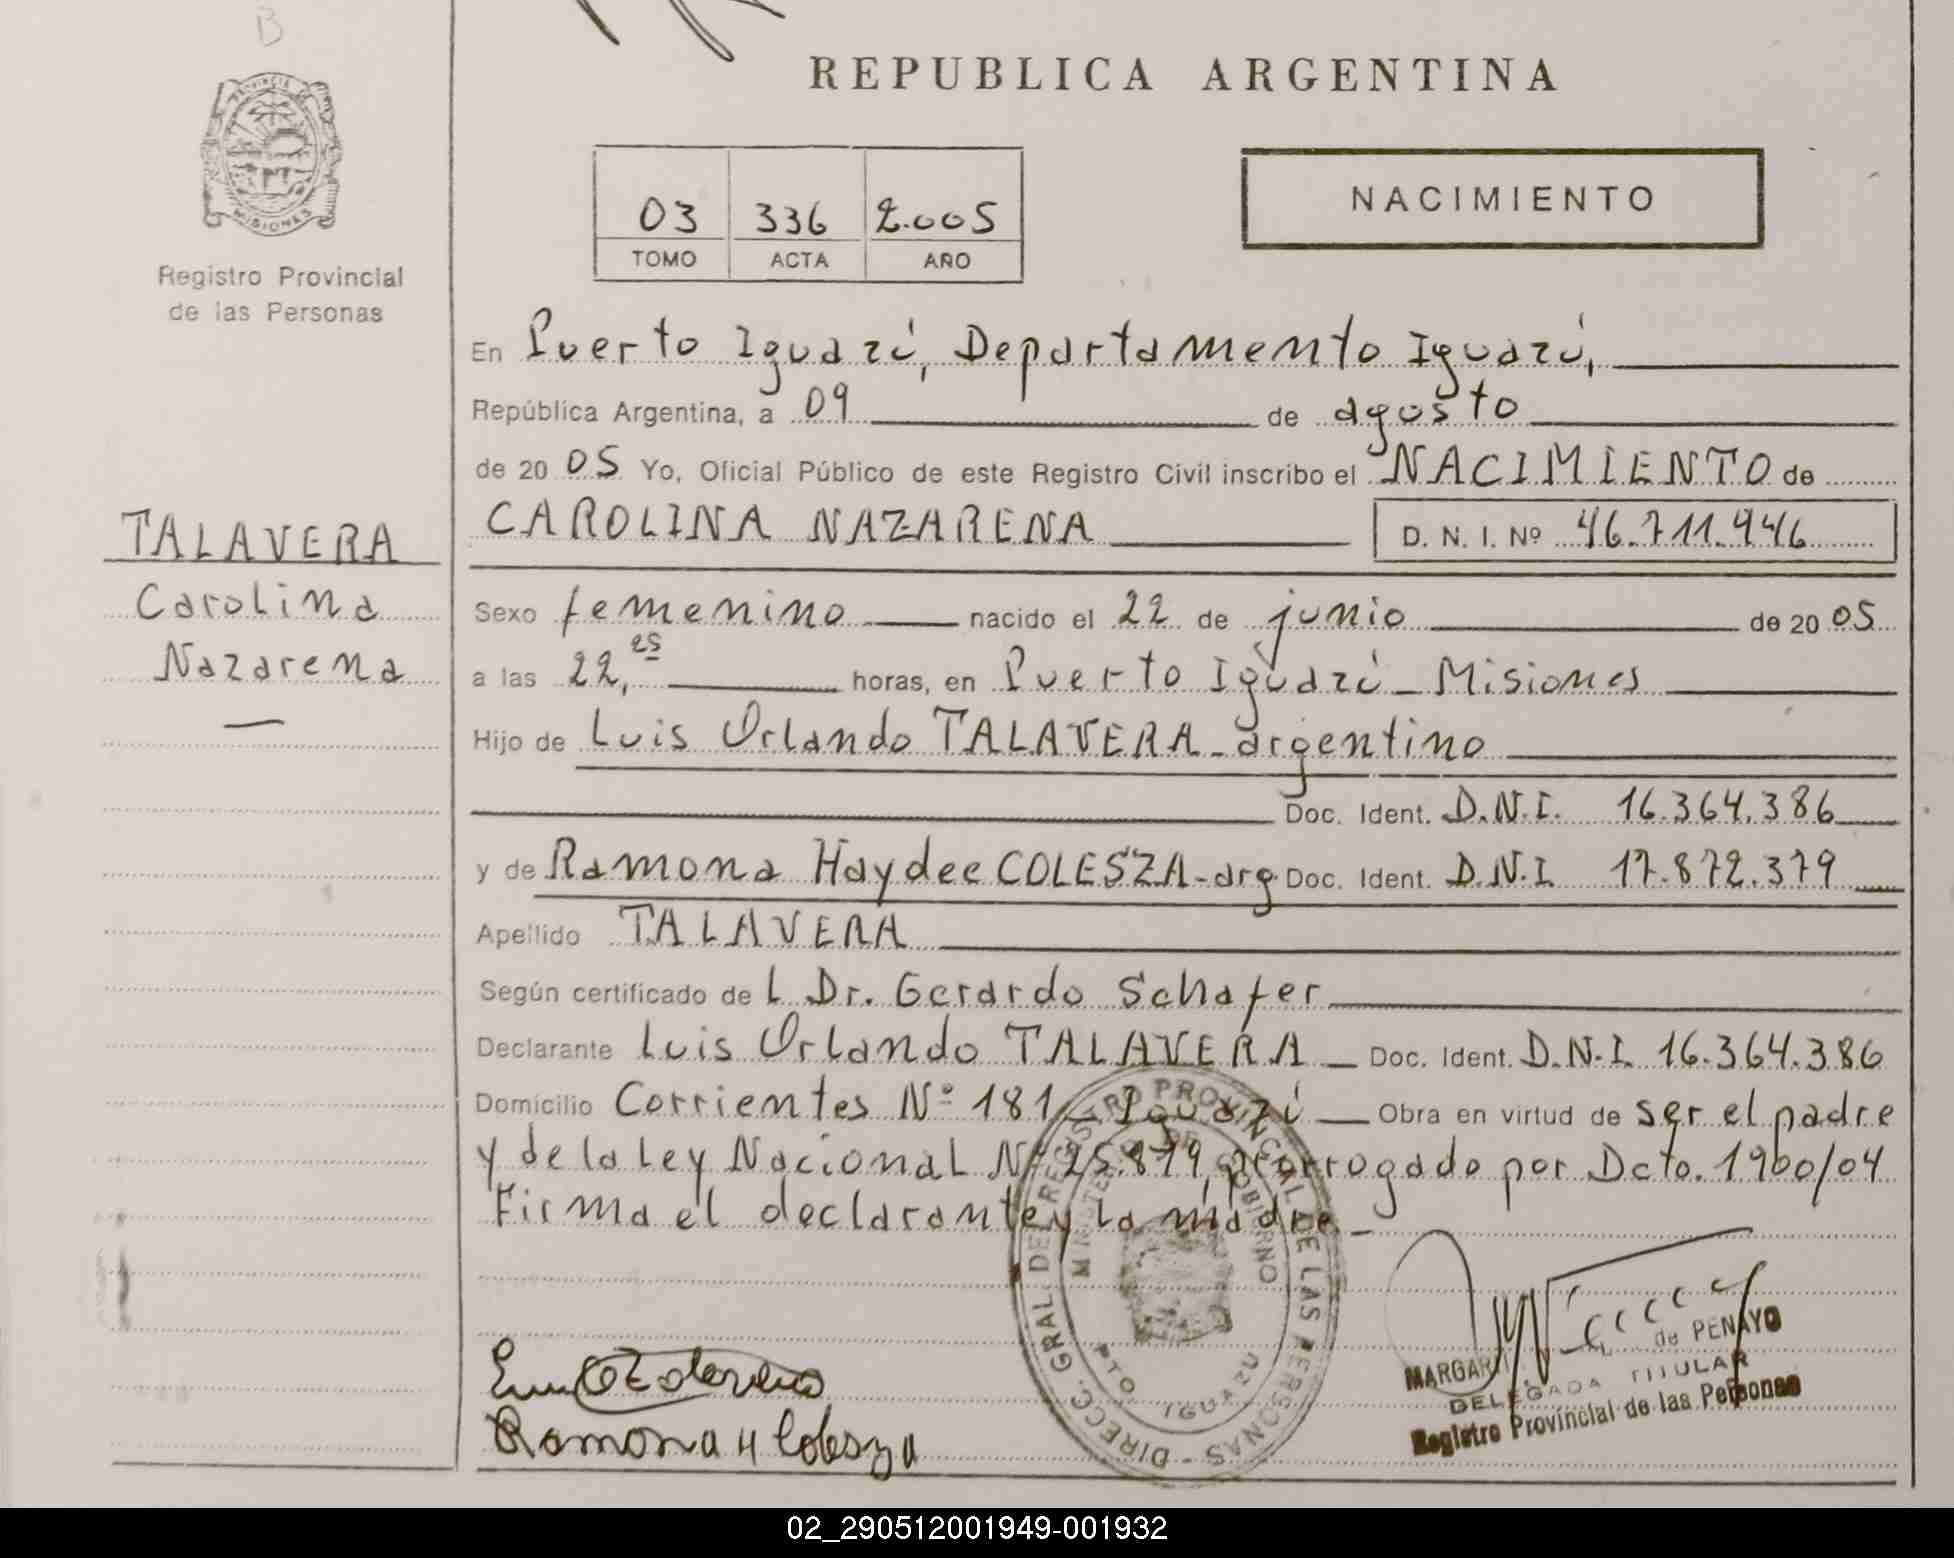 B
PROVINCIA DE
MISIONES
Registro Provincial
de las Personas
TALAVERA
Carolina
Nazarena
REPUBLICA ARGENTINA
03 336 2.005
TOMO ACTA AÑO
NACIMIENTO
En Puerto Iguazú, Departamento Iguazú,
República Argentina, a 09 de agosto
de 20 05 Yo, Oficial Público de este Registro Civil inscribo el NACIMIENTO de
CAROLINA NAZARENA D. N. I. Nº 46.711.946
Sexo femenino nacido el 22 de junio de 20 05
a las 22,es horas, en Puerto Iguazú - Misiones
Hijo de Luis Orlando TALAVERA - argentino
Doc. Ident. D.N.I. 16.364.386
y de Ramona Haydee COLESZA - arg Doc. Ident. D.N.I 17.872.379
Apellido TALAVERA
Según certificado de L Dr. Gerardo Schafer
Declarante Luis Orlando TALAVERA - Doc. Ident. D.N.I. 16.364.386
Domicilio Corrientes Nº 181 - Iguazú - Obra en virtud de ser el padre
y de la Ley Nacional Nº 25.819, prorrogado por Dcto. 1900/04
Firma el declarante y la madre. -
DIRECC. GRAL. DEL REGISTRO PROVINCIAL DE LAS PERSONAS -
MINISTERIO DE GOBIERNO
PTO IGUAZU
Ramona H Colesza
de PENAYO
DELEGADA TITULAR
Registro Provincial de las Personas
02_290512001949-001932